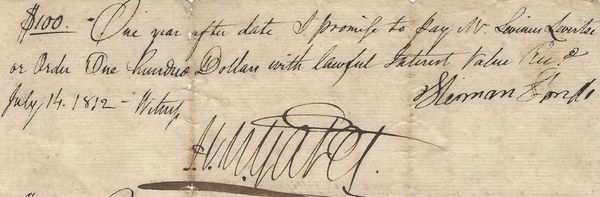 $100. - One year after date I promise to pay Mr. Levinus
or order One hundred Dollars with lawful Interest Value Rec.d
July 14. 1812 - Witness